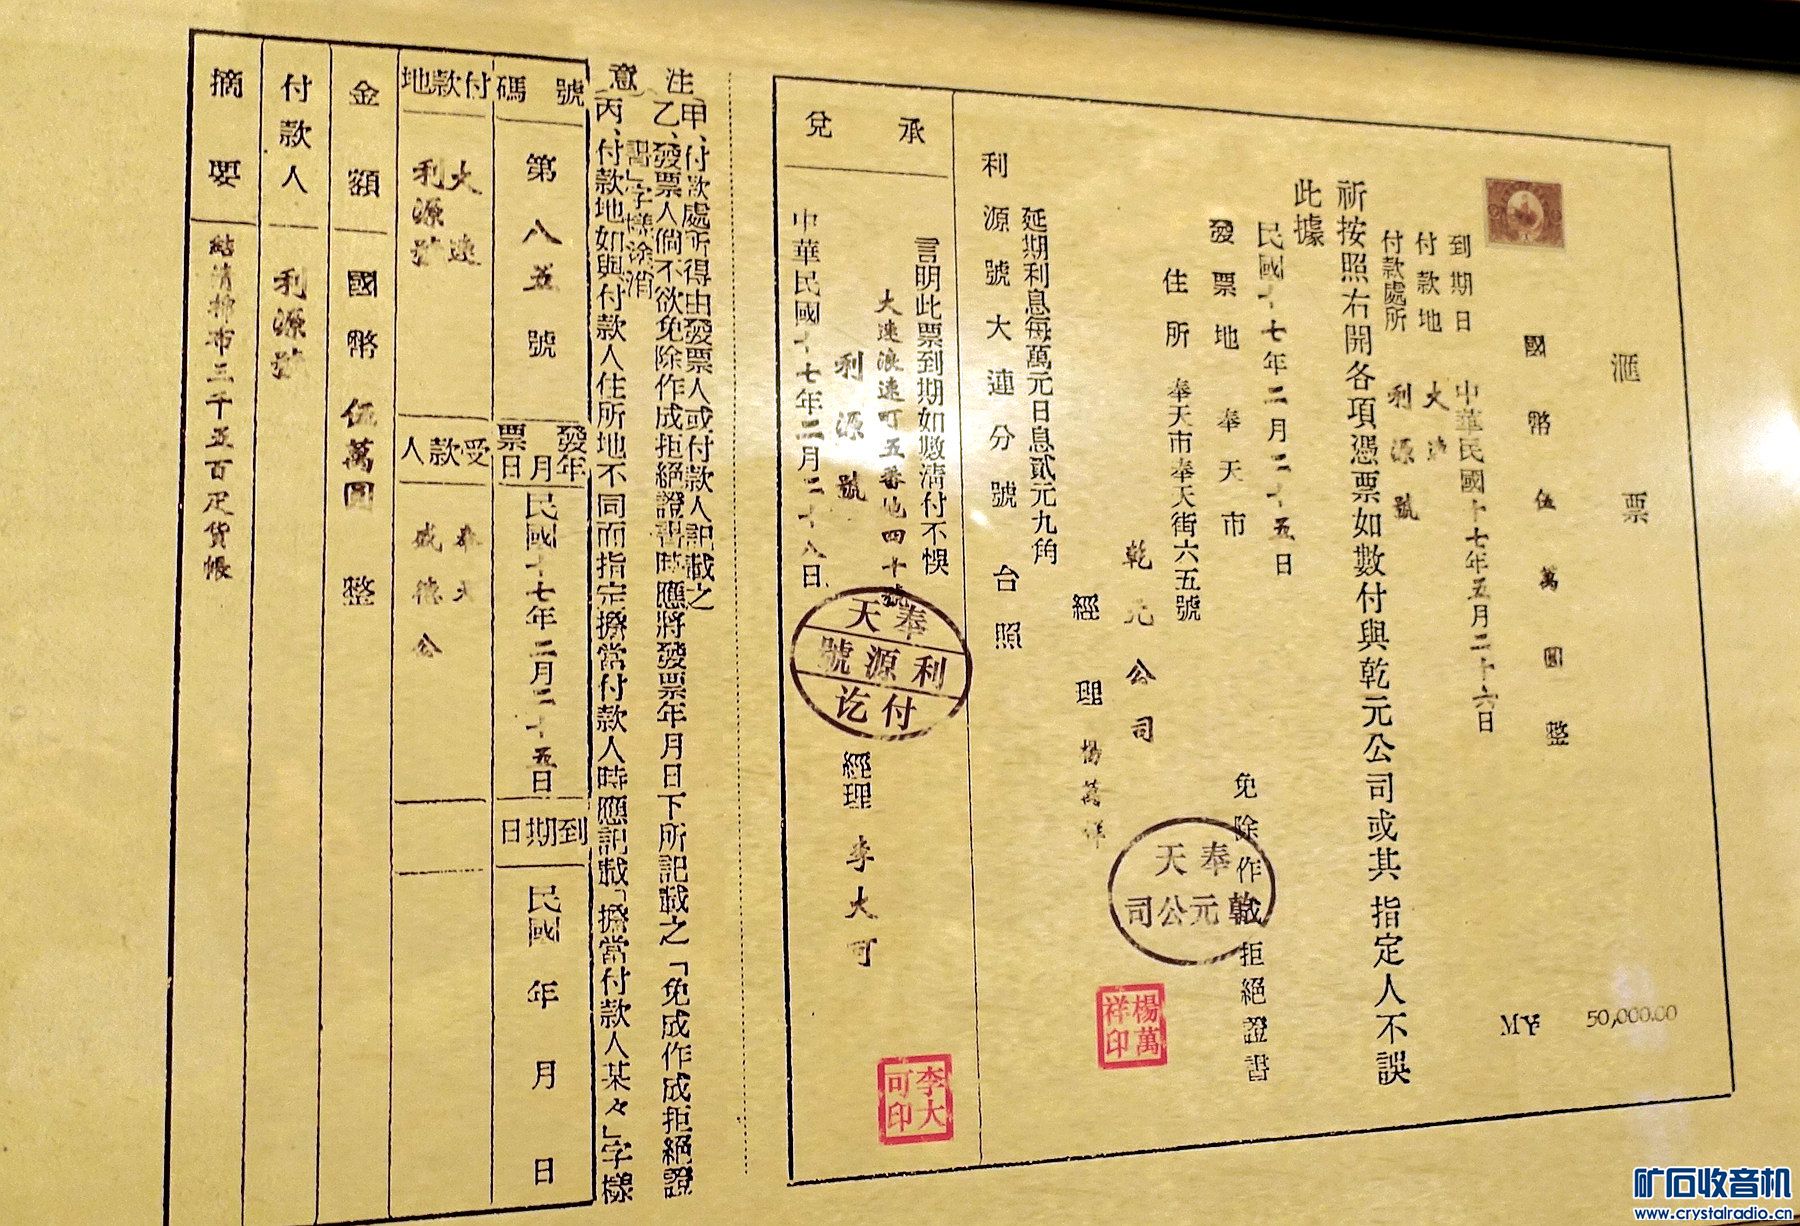 滙票
國幣伍萬圓整
MY 50,000.00
到期日 中華民國十七年五月二十六日
付款地 大連
付款處所 利源號
祈按照右開各項憑票如數付與乾元公司或其指定人不誤
此據
民國十七年二月二十五日
發票地 奉天市
免除作成拒絕證書
住所 奉天市奉天街六五號
乾元公司
經理 楊萬祥
奉天
乾元公司
楊萬祥印
延期利息每萬元日息貳元九角
利源號大連分號台照
承兌
言明此票到期如數清付不悞
大連浪速町五番地四十號
利源號
經理 李大可
中華民國十七年二月二十八日
奉天
利源號
付讫
李大可印
注意
甲、付款處所得由發票人或付款人記載之
乙、發票人倘不欲免除作成拒絕證書時應將發票年月日下所記載之「免成作成拒絕證書」字樣塗消
丙、付款地如與付款人住所地不同而指定擔當付款人時應記載「擔當付款人某々」字樣
號碼 第八五號
發票年月日 民國十七年二月二十五日
到期日 民國 年 月 日
付款地 大連
利源號
受款人 奉天
盛德公
金額 國幣伍萬圓整
付款人 利源號
摘要 結清棉布三千五百疋貨帳
矿石收音机
www.crystalradio.cn